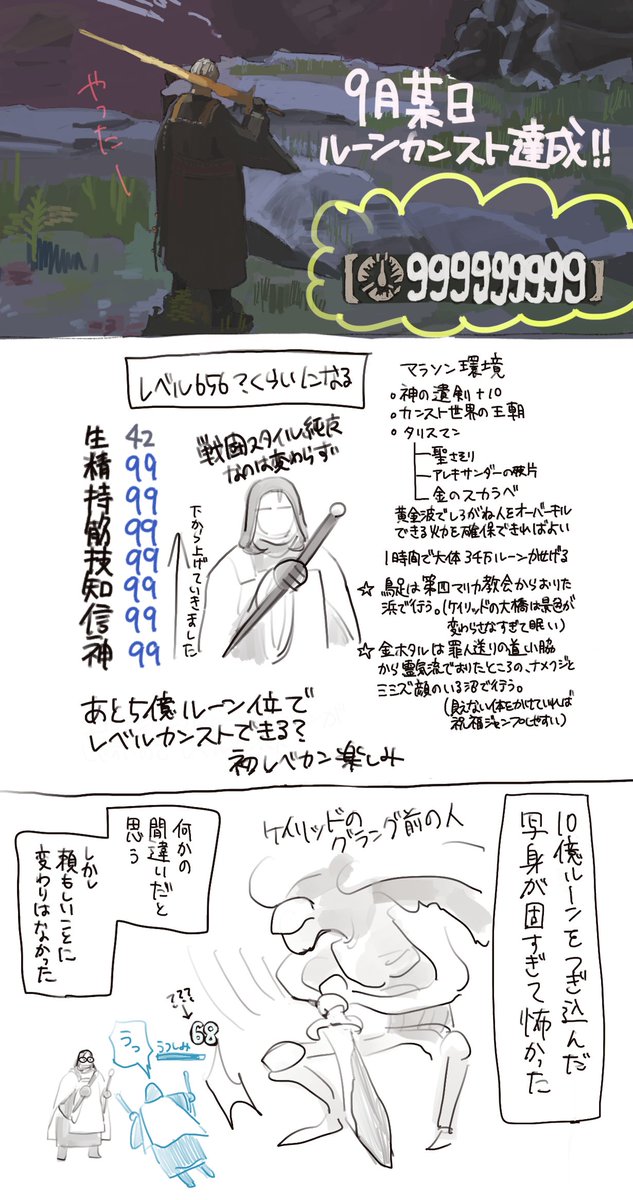 やったー
9月某日
ルーンカンスト達成!!
999999999
レベル656?くらいになる
生 42
精 99
持 99
筋 99
技 99
知 99
信 99
神 99
下から上げていきました
戦固スタイル純灰
なのは変わらず
マラソン環境
神の遺剣+10
カンスト世界の王朝
タリスマン
聖さそり
アレキサンダーの破片
金のスカラベ
黄金波でしろがね人をオーバーキル
できる火力を確保できればよい
1時間で大体34万ルーンかせげる
☆ 鳥足は第四マリカ教会からおりた
浜で行う。(ケイリッドの大橋は景色が
変わらなすぎて眠い)
☆ 金ホタルは罪人送りの道い脇
から霊気流でおりたところの、ナメクジと
ミミズ顔のいる沼で行う。
(見えない体をかけていれば
祝福ジャンプしやすい)
あと5億ルーン位で
レベルカンストできる?
初レベカン楽しみ
10億ルーンをつぎ込んだ
写身が固すぎて怖かった
ケイリッドの
グラング前の人
何かの
間違いだと
思う
しかし
頼もしいことに
変わりはなかった
ててて
68
うっ
うつしみ